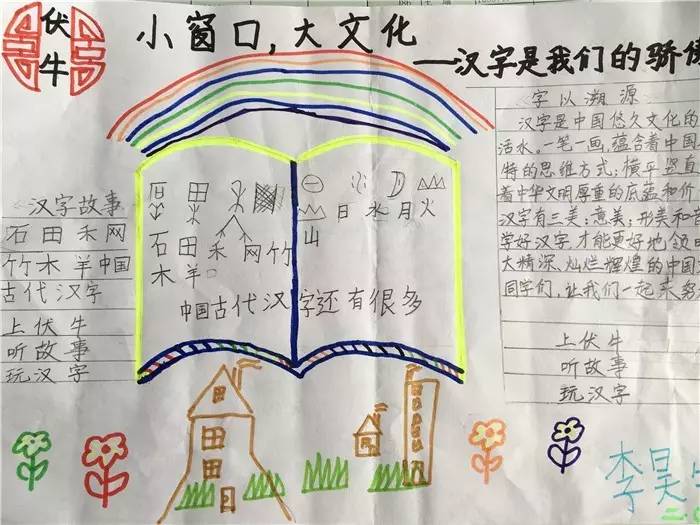 伏牛
小窗口,大文化
—汉字是我们的骄傲
汉字故事
石田禾网
竹木羊中国
古代汉字
上伏牛
听故事
玩汉字
田
日水月火
石田禾网竹
山
木羊
中国古代汉字还有很多
《字以溯源
汉字是中国悠久文化的
活水。一笔一画,蕴含着中国
特的思维方式;横平竖直
着中华文明厚重的底蕴和
汉字有三美:意美;形美和
学好汉字,才能更好地领
大精深、灿烂辉煌的中国
同学们,让我们一起来
上伏牛
听故事
玩汉字
李昊